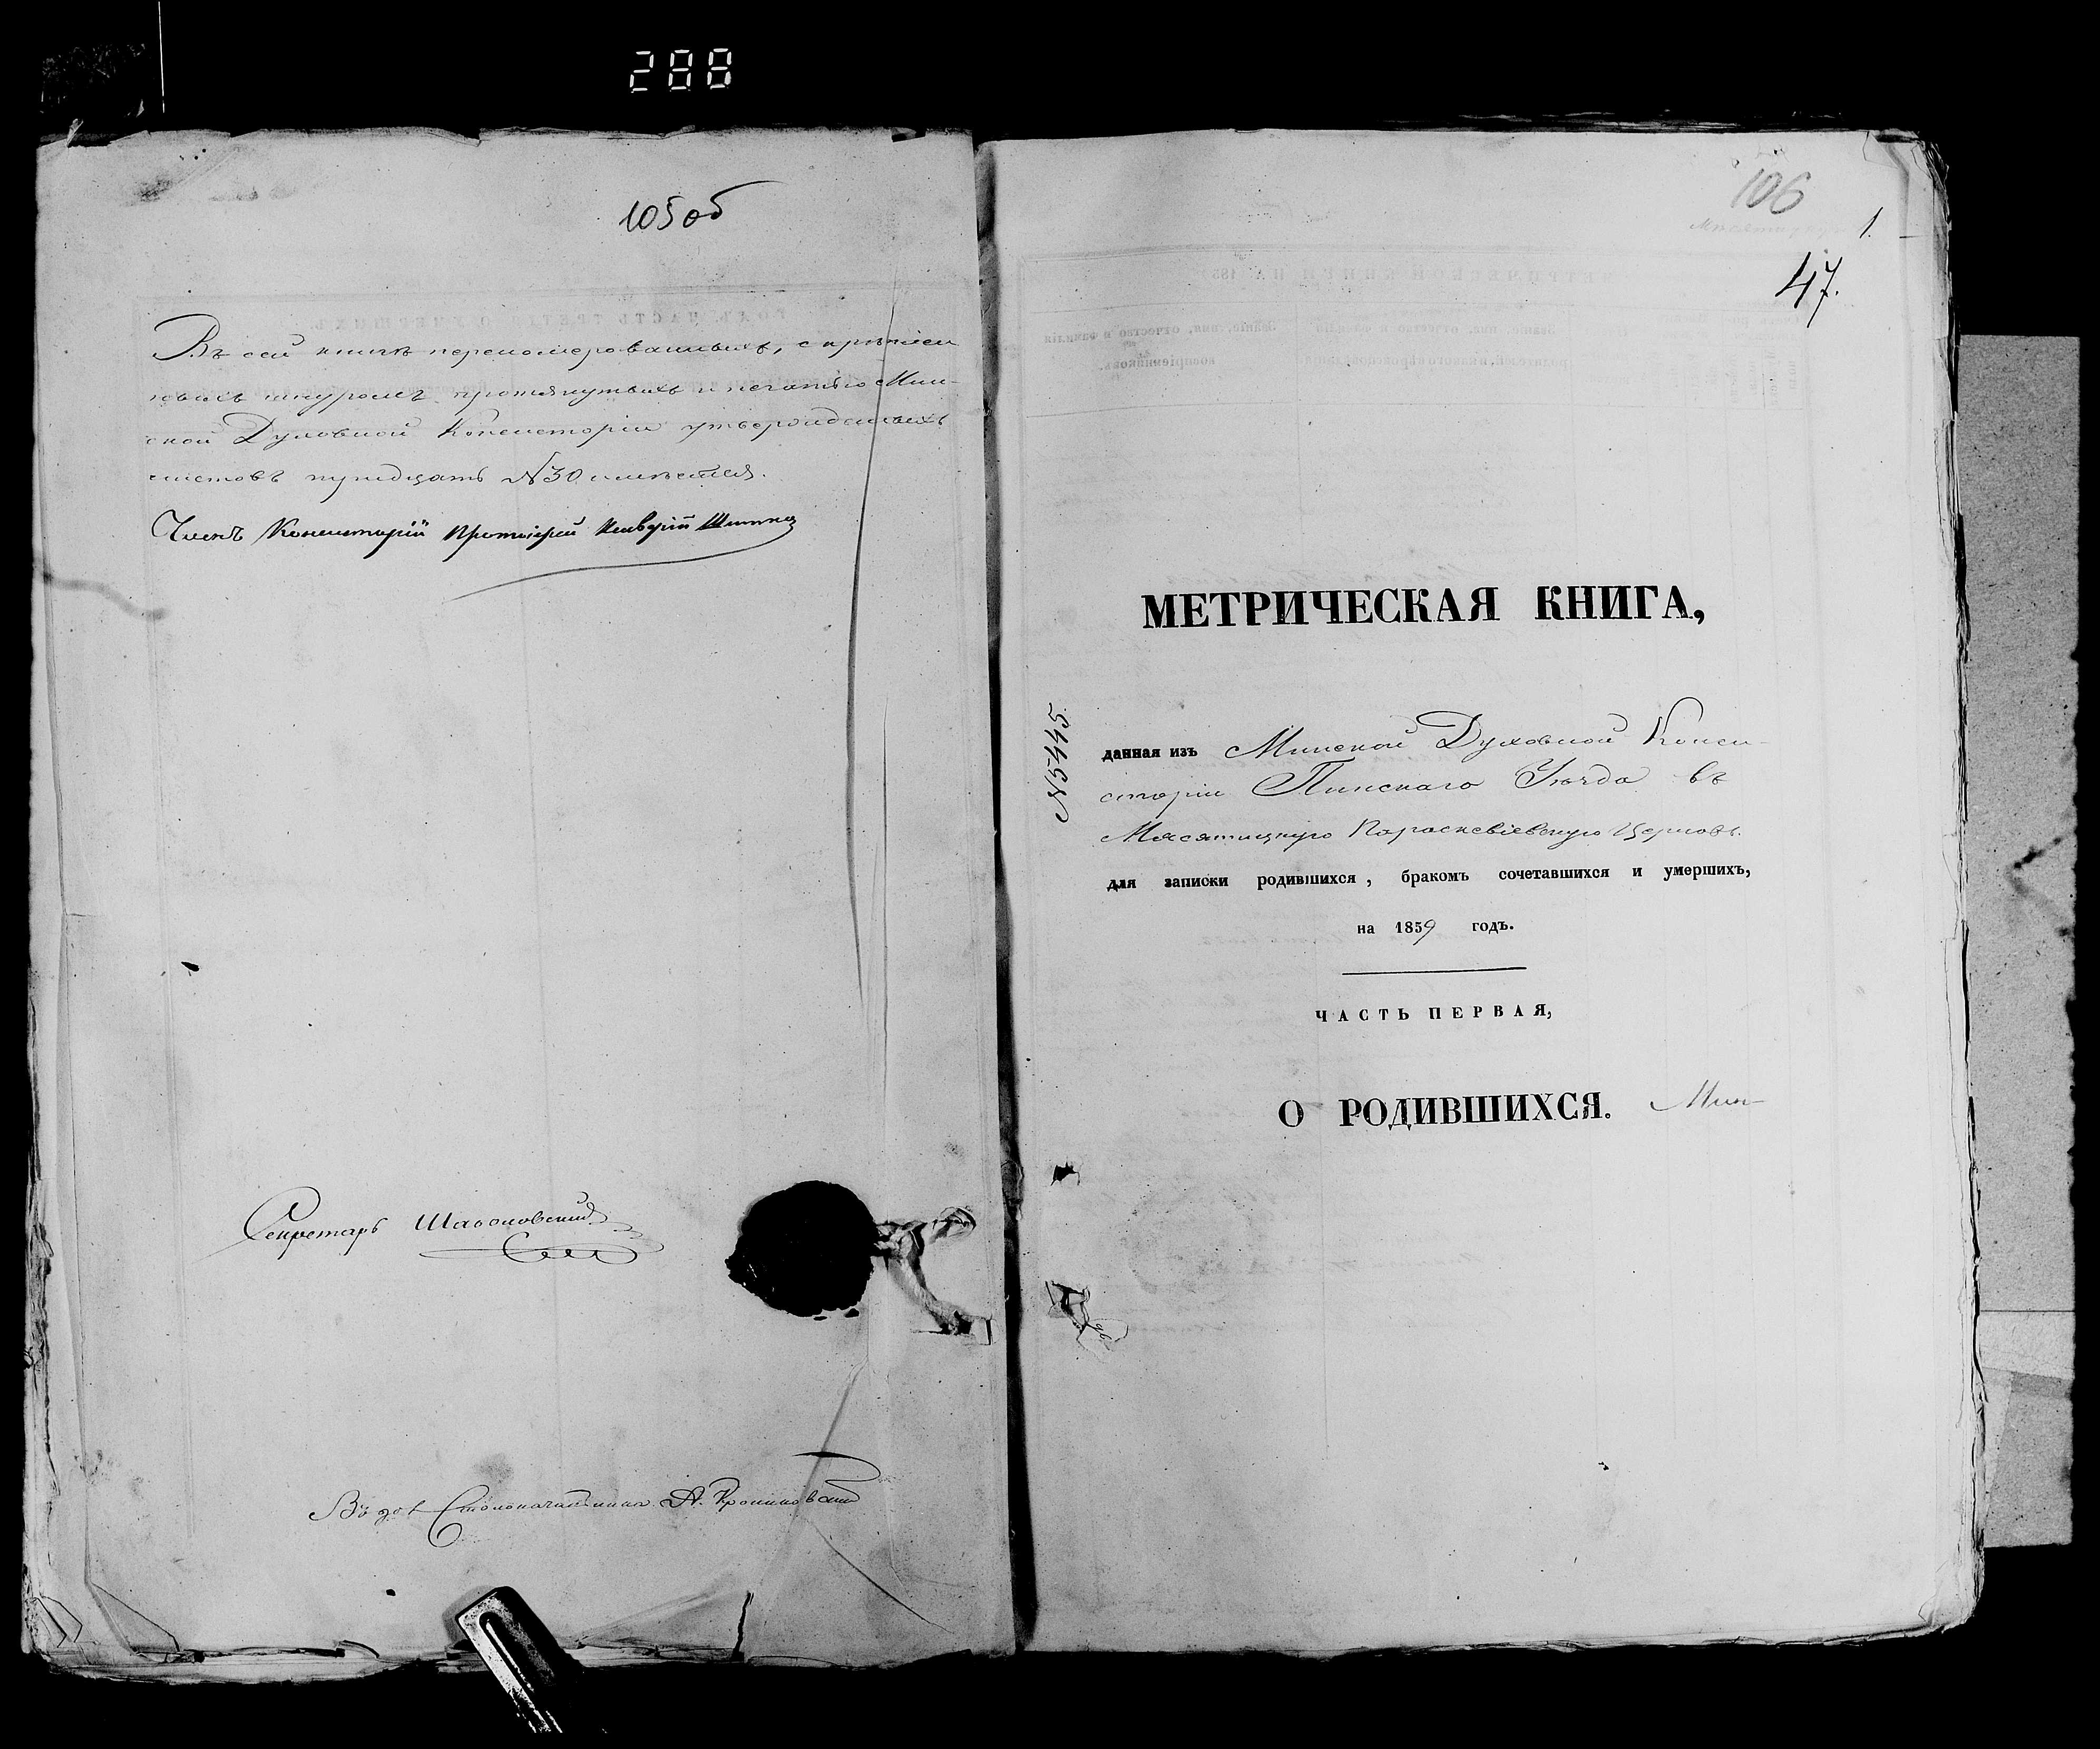 288
105 об
Въ сей книгѣ перенумерованныхъ, скрѣпленныхъ
шнуромъ протянутыхъ и печатью Мин-
ской Духовной Консисторіи утвержденныхъ
листовъ тридцать №30 имѣется.
Членъ Консисторіи Протоіерей
Секретарь
Столоначальника А.
106
1.
47.
МЕТРИЧЕСКАЯ КНИГА,
№5445.
данная изъ Минской Духовной Конси-
сторіи Пинскаго Уѣзда въ
Мясятицкую Параскевіевскую Церковь.
для записки родившихся, бракомъ сочетавшихся и умершихъ,
на 1859 годъ.
ЧАСТЬ ПЕРВАЯ,
О РОДИВШИХСЯ. Мин-